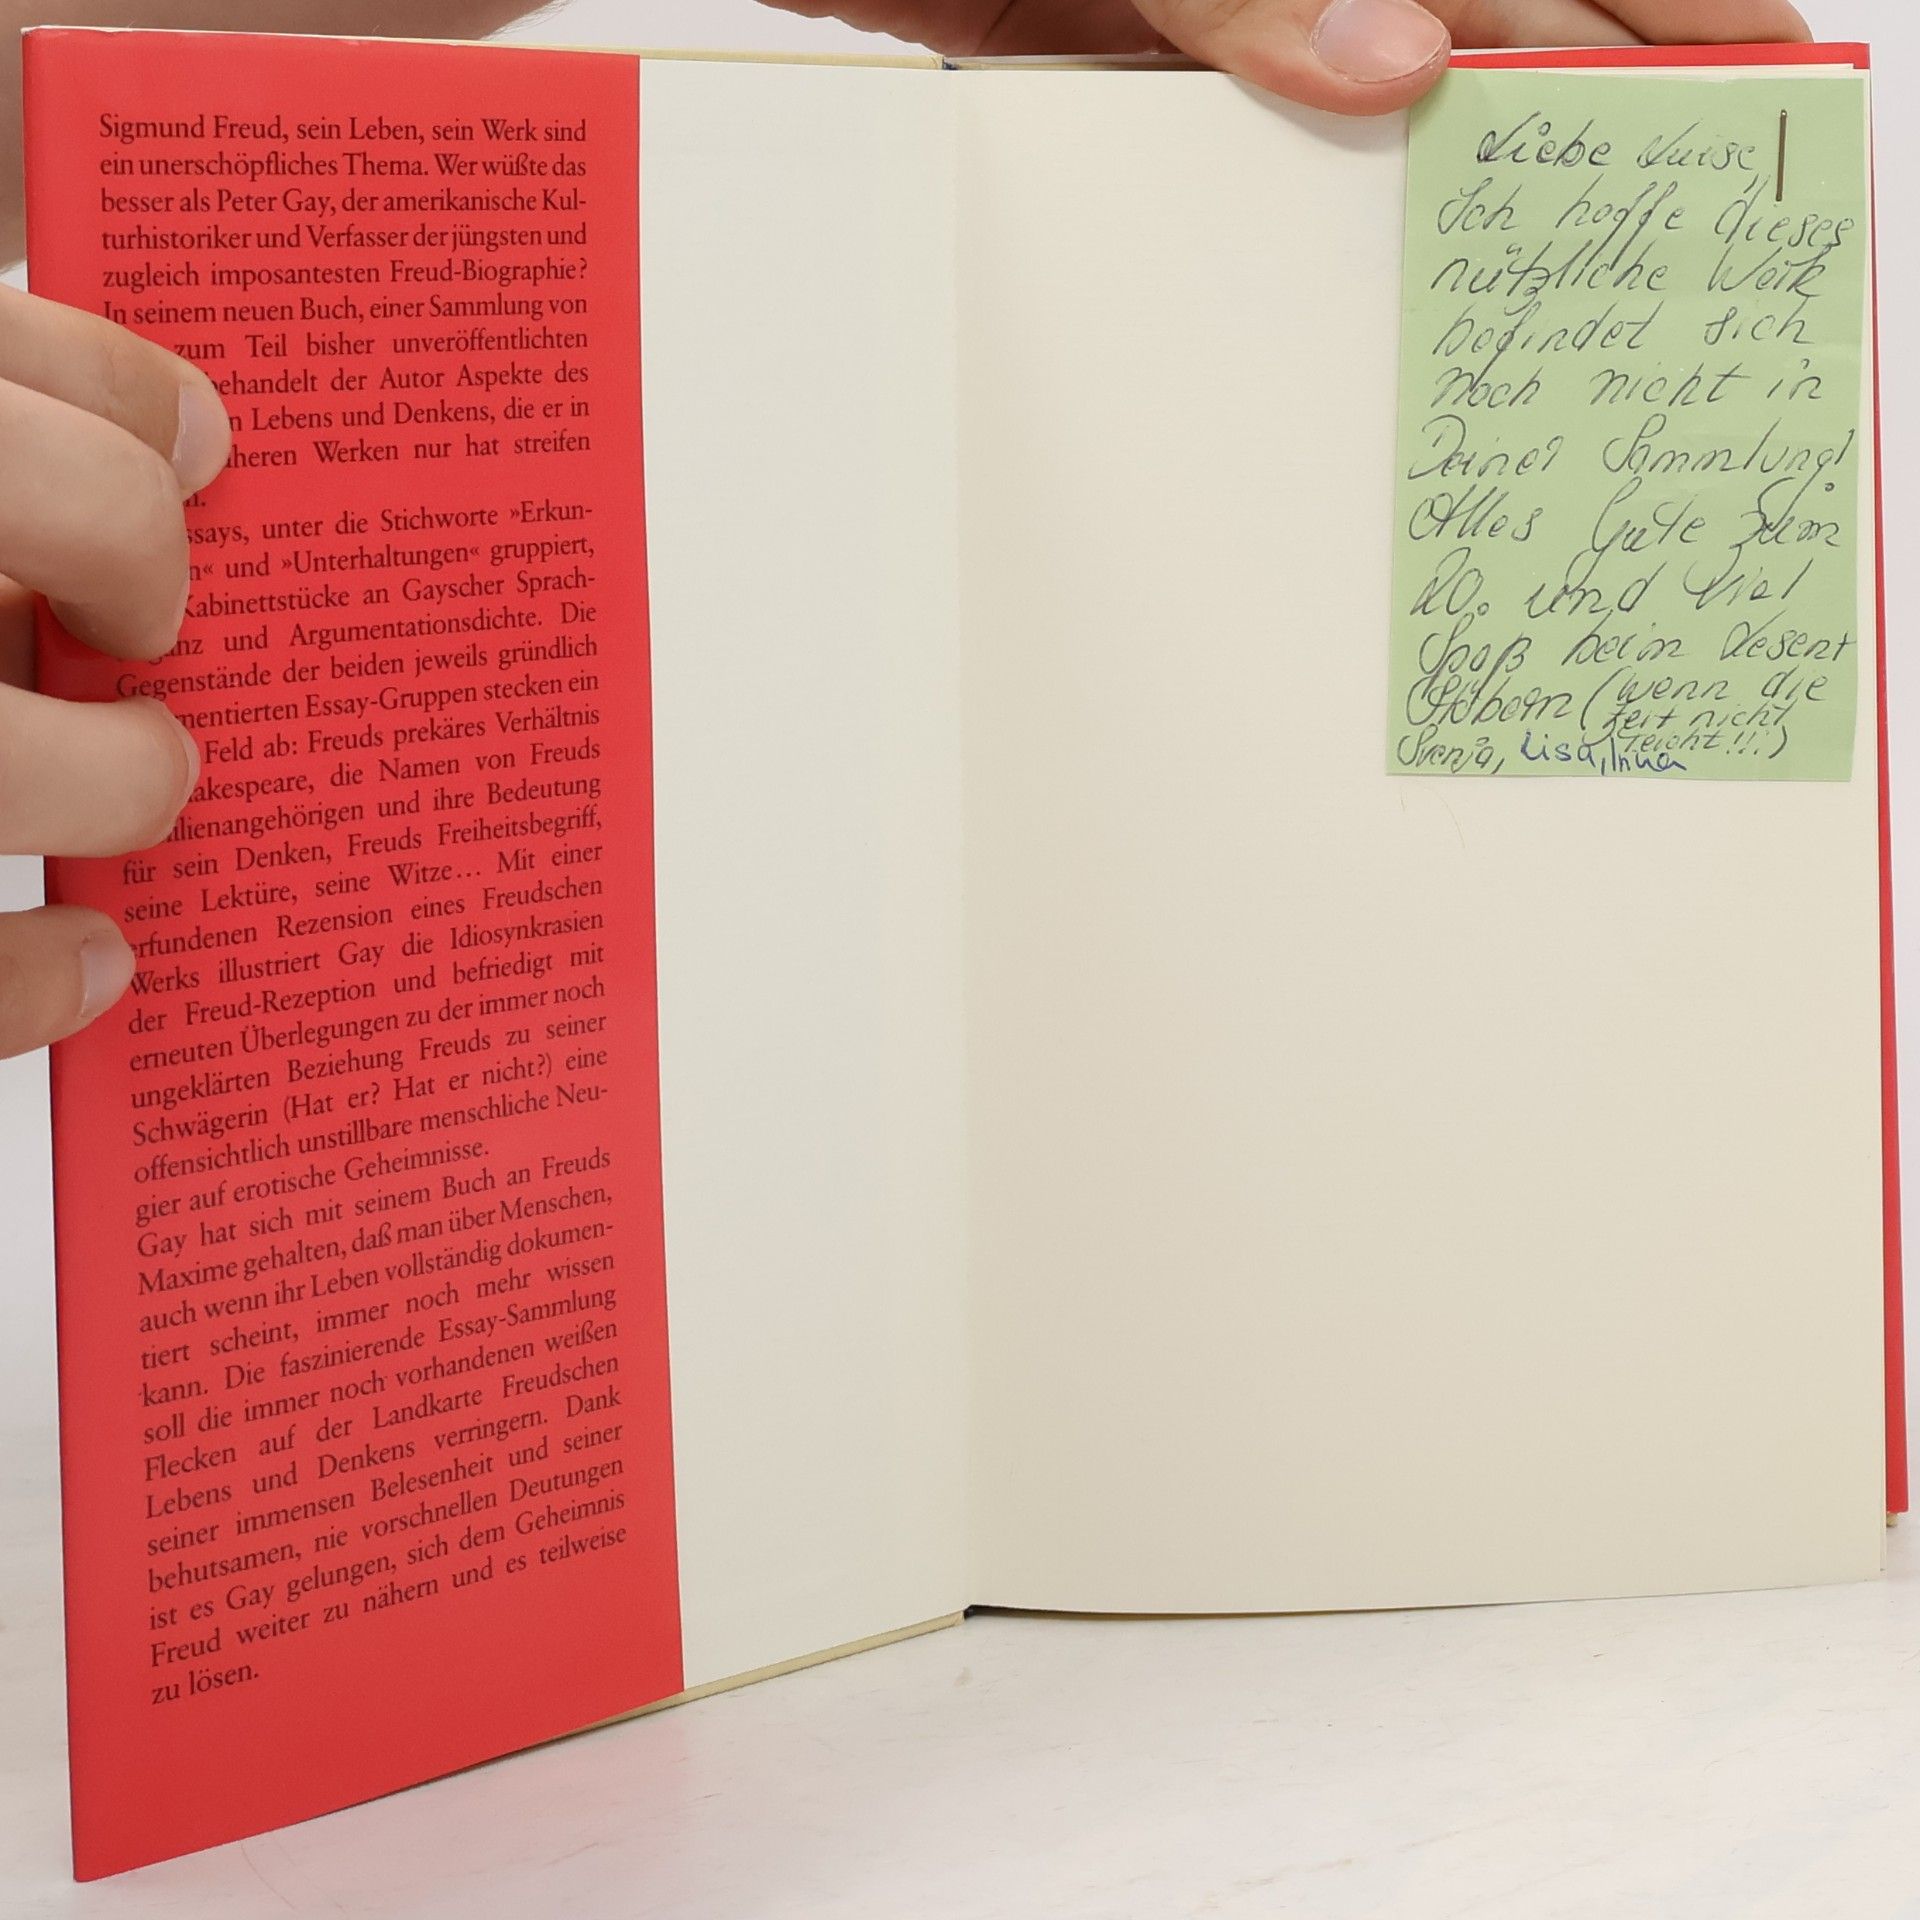 Sigmund Freud, sein Leben, sein Werk sind
ein unerschöpfliches Thema. Wer wüßte das
besser als Peter Gay, der amerikanische Kul-
turhistoriker und Verfasser der jüngsten und
zugleich imposantesten Freud-Biographie?
In seinem neuen Buch, einer Sammlung von
zum Teil bisher unveröffentlichten
behandelt der Autor Aspekte des
n Lebens und Denkens, die er in
heren Werken nur hat streifen
n.
ssays, unter die Stichworte »Erkun-
n« und »Unterhaltungen« gruppiert,
Kabinettstücke an Gayscher Sprach-
ganz und Argumentationsdichte. Die
Gegenstände der beiden jeweils gründlich
mentierten Essay-Gruppen stecken ein
Feld ab: Freuds prekäres Verhältnis
akespeare, die Namen von Freuds
ilienangehörigen und ihre Bedeutung
für sein Denken, Freuds Freiheitsbegriff,
seine Lektüre, seine Witze… Mit einer
erfundenen Rezension eines Freudschen
Werks illustriert Gay die Idiosynkrasien
der Freud-Rezeption und befriedigt mit
erneuten Überlegungen zu der immer noch
ungeklärten Beziehung Freuds zu seiner
Schwägerin (Hat er? Hat er nicht?) eine
offensichtlich unstillbare menschliche Neu-
gier auf erotische Geheimnisse.
Gay hat sich mit seinem Buch an Freuds
Maxime gehalten, daß man über Menschen,
auch wenn ihr Leben vollständig dokumen-
tiert scheint, immer noch mehr wissen
kann. Die faszinierende Essay-Sammlung
soll die immer noch vorhandenen weißen
Flecken auf der Landkarte Freudschen
Lebens und Denkens verringern. Dank
seiner immensen Belesenheit und seiner
behutsamen, nie vorschnellen Deutungen
ist es Gay gelungen, sich dem Geheimnis
Freud weiter zu nähern und es teilweise
zu lösen.
Liebe Luise,
Ich hoffe dieses
nützliche Werk
befindet sich
noch nicht in
Deiner Sammlung!
Alles Gute zum
20. und viel
Spaß beim Lesen+
Stöbern (wenn die
Zeit nicht
reicht!!!)
Svenja, Lisa,